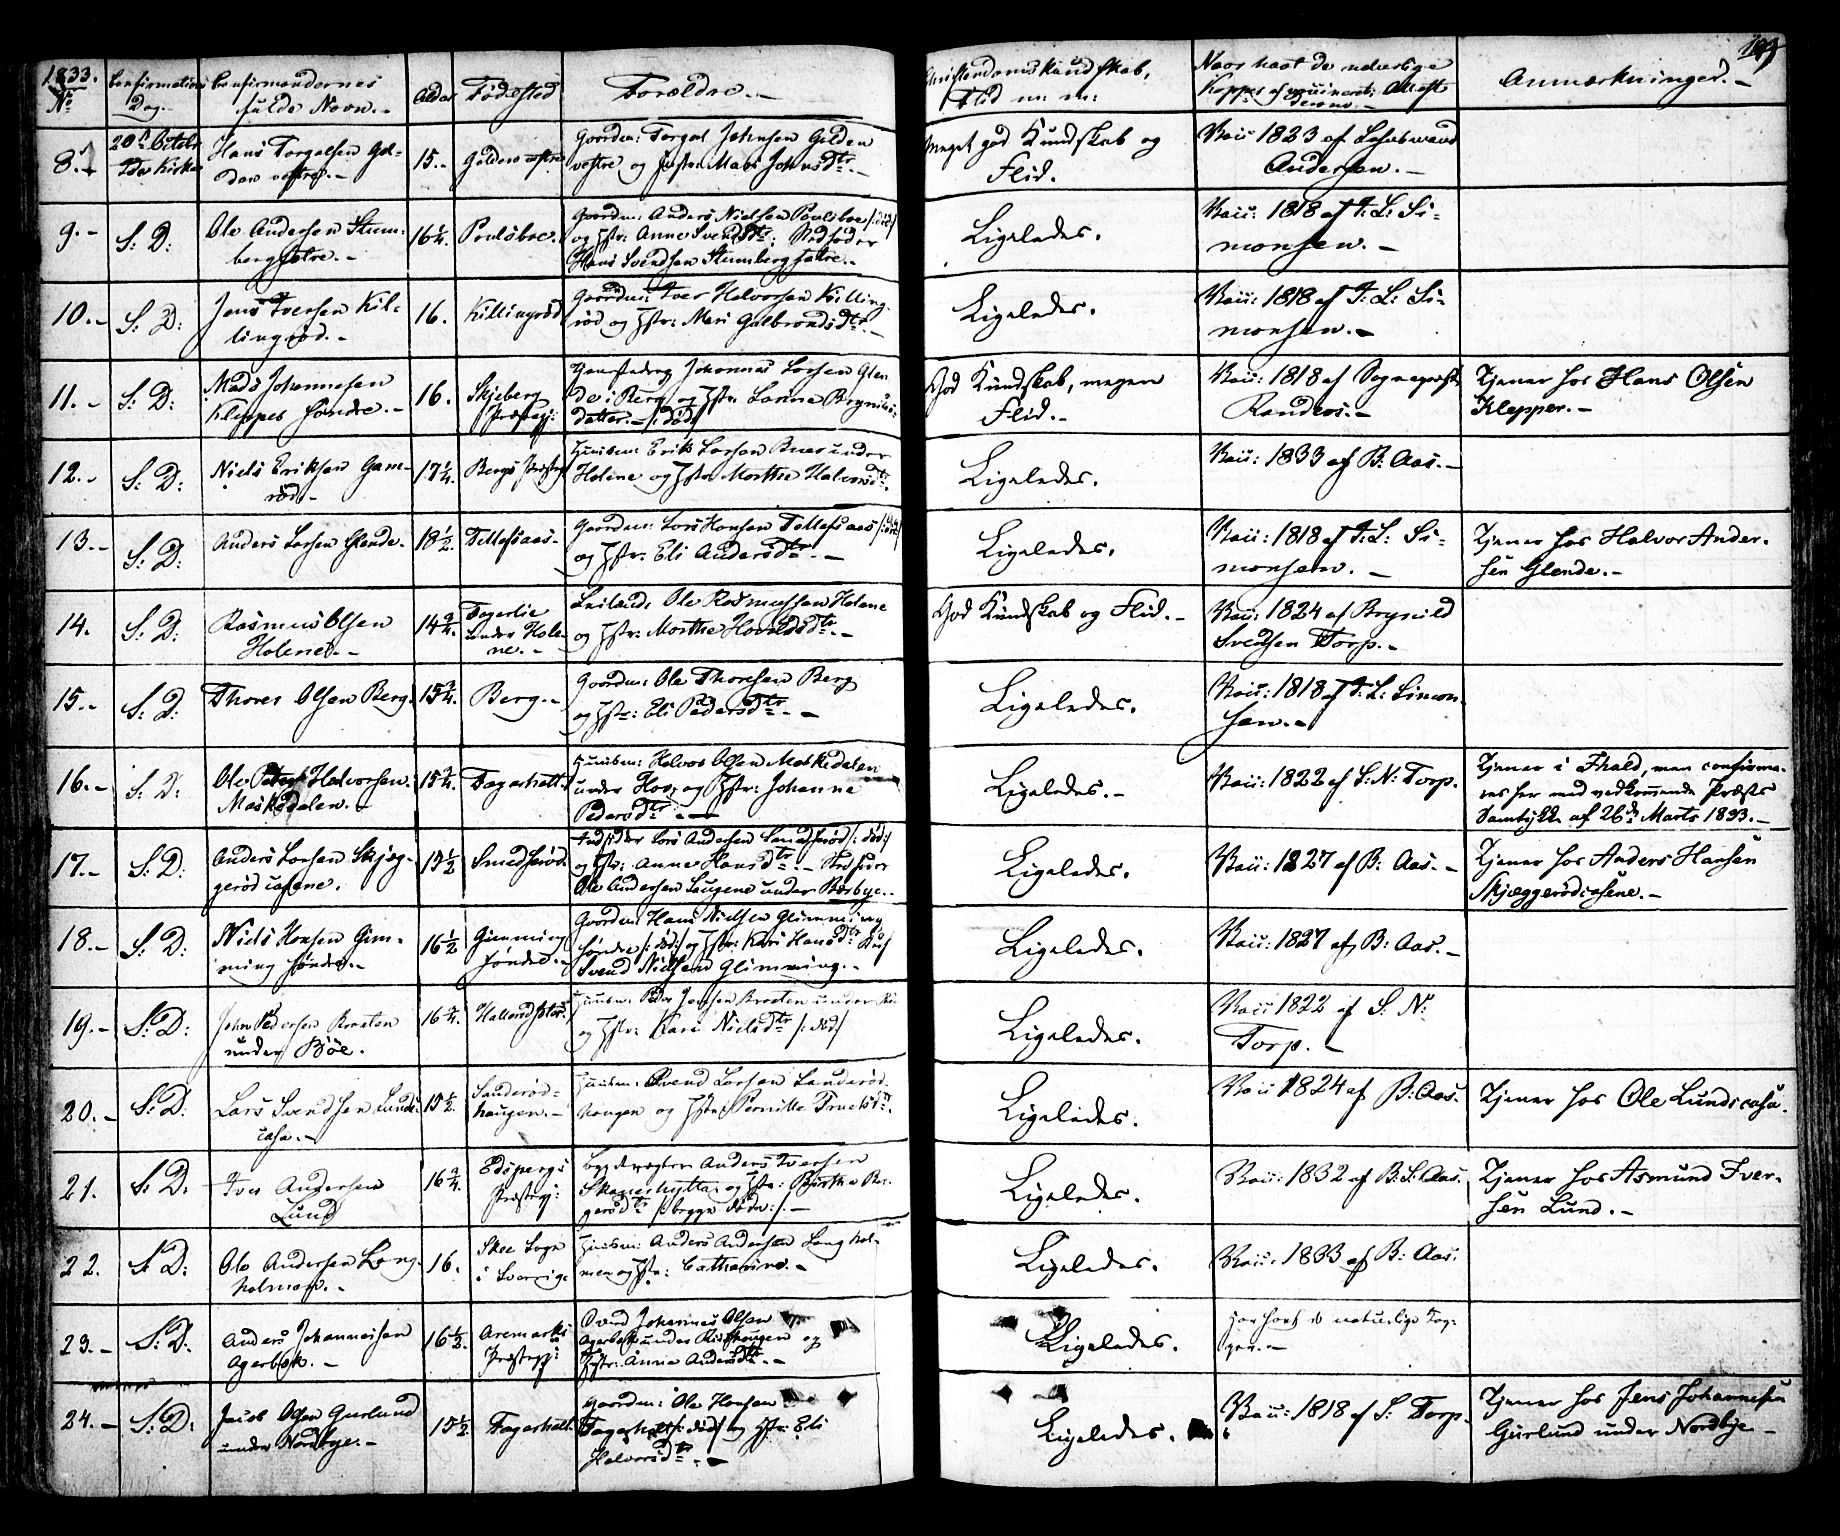 1833.
No
Confirmations
Dag.
Confirmandernes
fulde Navn. -
Alder
Fødested
Forældre. -
Christendoms Kundskab,
Flid m: m:
Naar havt de naturlige
Kopper ell: vaccineret: Attest
derom. -
Anmærkninger. -
8.
20de Octobr
Idde Kirke
Hans Torgalsen Gol-
den vestre. -
15. -
Golden vestre
Gaardm: Torgal Johnsen Golden
vestre og Hstr: Mari Johnsdtr. -
Meget god Kundskab og
Flid.
Vaii: 1823 af
Andersen. -
9. -
S: D:
Ole Andersen Stum-
berg søtre. -
16 1/4.
Poulsboe.
Gaardm: Anders Nielsen Poulsboe /:død:/
og Hstr: Anne Svendsdtr; Stedfader
Hans Svendsen Stumberg søtre. -
Ligeledes.
Vaii: 1818 af T: L: Si-
monsen. -
10. -
S: D:
Jens Iversen Kil-
lingrød. -
16.
Killingrød
Gaardm: Iver Halvorsen Killing-
rød og Hstr: Mari Gulbrandsdtr. -
Ligeledes.
Vaii: 1818 af T: L: Si-
monsen. -
11. -
S: D:
Mads Johannesen
Klepper søndre. -
16.
Skjeberg
Præstegj:
Johannes Larsen Glen-
de i Berg og Hstr: Larine Brynils-
datter. - /:død:/
God Kundskab, megen
Flid. -
Vaii: 1818 af Sognepræst
Randers. -
Tjener hos Hans Olsen
Klepper. -
12. -
S: D:
Niels Eriksen Gam-
rød. -
17 1/4.
Bergs Præstegj:
Huusm: Erik Larsen under
Holene og Hstr: Marthe Halvorsdtr.
Ligeledes.
Vaii: 1833 af B: Aas. -
13. -
S: D:
Anders Larsen Glende.
18 1/2.
Tellefsaas.
Gaardm: Lars Hansen Tellefsaas /:død:/
og Hstr: Eli Andersdtr. -
Ligeledes.
Vaii: 1818 af T: L: Si-
monsen. -
Tjener hos Halvor Ander-
sen Glende. -
14.
S: D:
Rasmus Olsen
Holene. -
14 3/4.
Fagerlie
under Hole-
ne. -
Leilænd: Ole Rasmussen Holene
og Hstr: Marthe Haralsdtr. -
God Kundskab og Flid. -
Vaii: 1824 af Brynild
Svendsen Torp. -
15. -
S: D:
Thores Olsen Berg.
15 3/4.
Berg. -
Gaardm: Ole Thoresen Berg
og Hstr: Eli Pedersdtr. -
Ligeledes.
Vaii: 1818 af T: L: Simon-
sen. -
16. -
S: D:
Ole Halvorsen
Maskedalen. -
15 3/4.
Fagerholt.
Huusm: Halvor Olsen Maskedalen
under Hov, og Hstr: Johanne
Pedersdtr. -
Ligeledes. -
Vaii: 1822 af S: N: Torp.
Tjener i Fhald, men confirme-
res her med vedkommende Præsts
Samtykke af 26de Marts 1833. -
17. -
S: D:
Anders Larsen Skjæg-
gerødcasene.
15 1/2
Smedserød.
Indsidder Lars Andersen Smedserød /:død:/
og Hstr: Anne Hansdtr. -
Ole Andersen Laugene under Børbye. -
Ligeledes.
Vaii: 1827 af B: Aas. -
Tjener hos Anders Hansen
Skjæggerødcasene. -
18. -
S: D:
Niels Hansen Gim-
ming søndre. -
16 1/2
Gimming
søndre. -
Gaardm: Hans Nielsen Glimming
søndre /:død:/ og Hstr: Kari Hansdtr.
Svend Nielsen Glimming. -
Ligeledes.
Vaii: 1827 af B: Aas. -
19. -
S: D:
John Pedersen Braaten
under Bøe.
16 3/4.
Huusm: Peder Jensen Braaten under
og Hstr: Kari Nielsdtr /:død:/
Ligeledes.
Vaii 1822 af S: N:
Torp. -
20. -
S: D:
Lars Svendsen Lunds-
casa. -
15 1/2.
Sauderød-
haugen. -
Huusm: Svend Larsen Sauderød-
haugen og Hstr: Pernille Truelsdtr.
Ligeledes.
Vaii 1824 af B: Aas.
Tjener hos Ole Lundscasa.
21.
S: D:
Iver Andersen
Lund
16 3/4.
Edsbergs
Præstegj:
Anders Iversen
Skaneshytten og Hstr: Birthe Bør-
gersdtr /:begge døde:/. -
Ligeledes.
Vaii: 1832 af B: S: Aas.
Tjener hos Asmund Iver-
sen Lund. -
22.
S: D:
Ole Andersen Lang-
holmen. -
16.
Skee Sogn
i Sverrige
Huusm: Anders Andersen Langhol-
men og Hstr: Catharine. -
Ligeledes.
Vaii: 1833 af B: Aas.
23. -
S: D:
Anders Johannesen
Agerbæk. -
16 1/2.
Aremarks
Præstegj:
Johannes Olsen
Agerbæk under og
Hstr: Anne Andersdtr. -
Ligeledes.
Har havt de naturlige Kop-
per. -
24. -
S: D:
Jacob Olsen Gurlund
under Nordbye. -
15 1/2
Fagerholt.
Gaardm: Ole Hansen
Fagerholt /:død:/ og Hstr: Eli
Halvorsdtr. -
Ligeledes.
Vaii: 1818 af S: Torp.
Tjener hos Jens Johannesen
Gurlund under Nordbye -